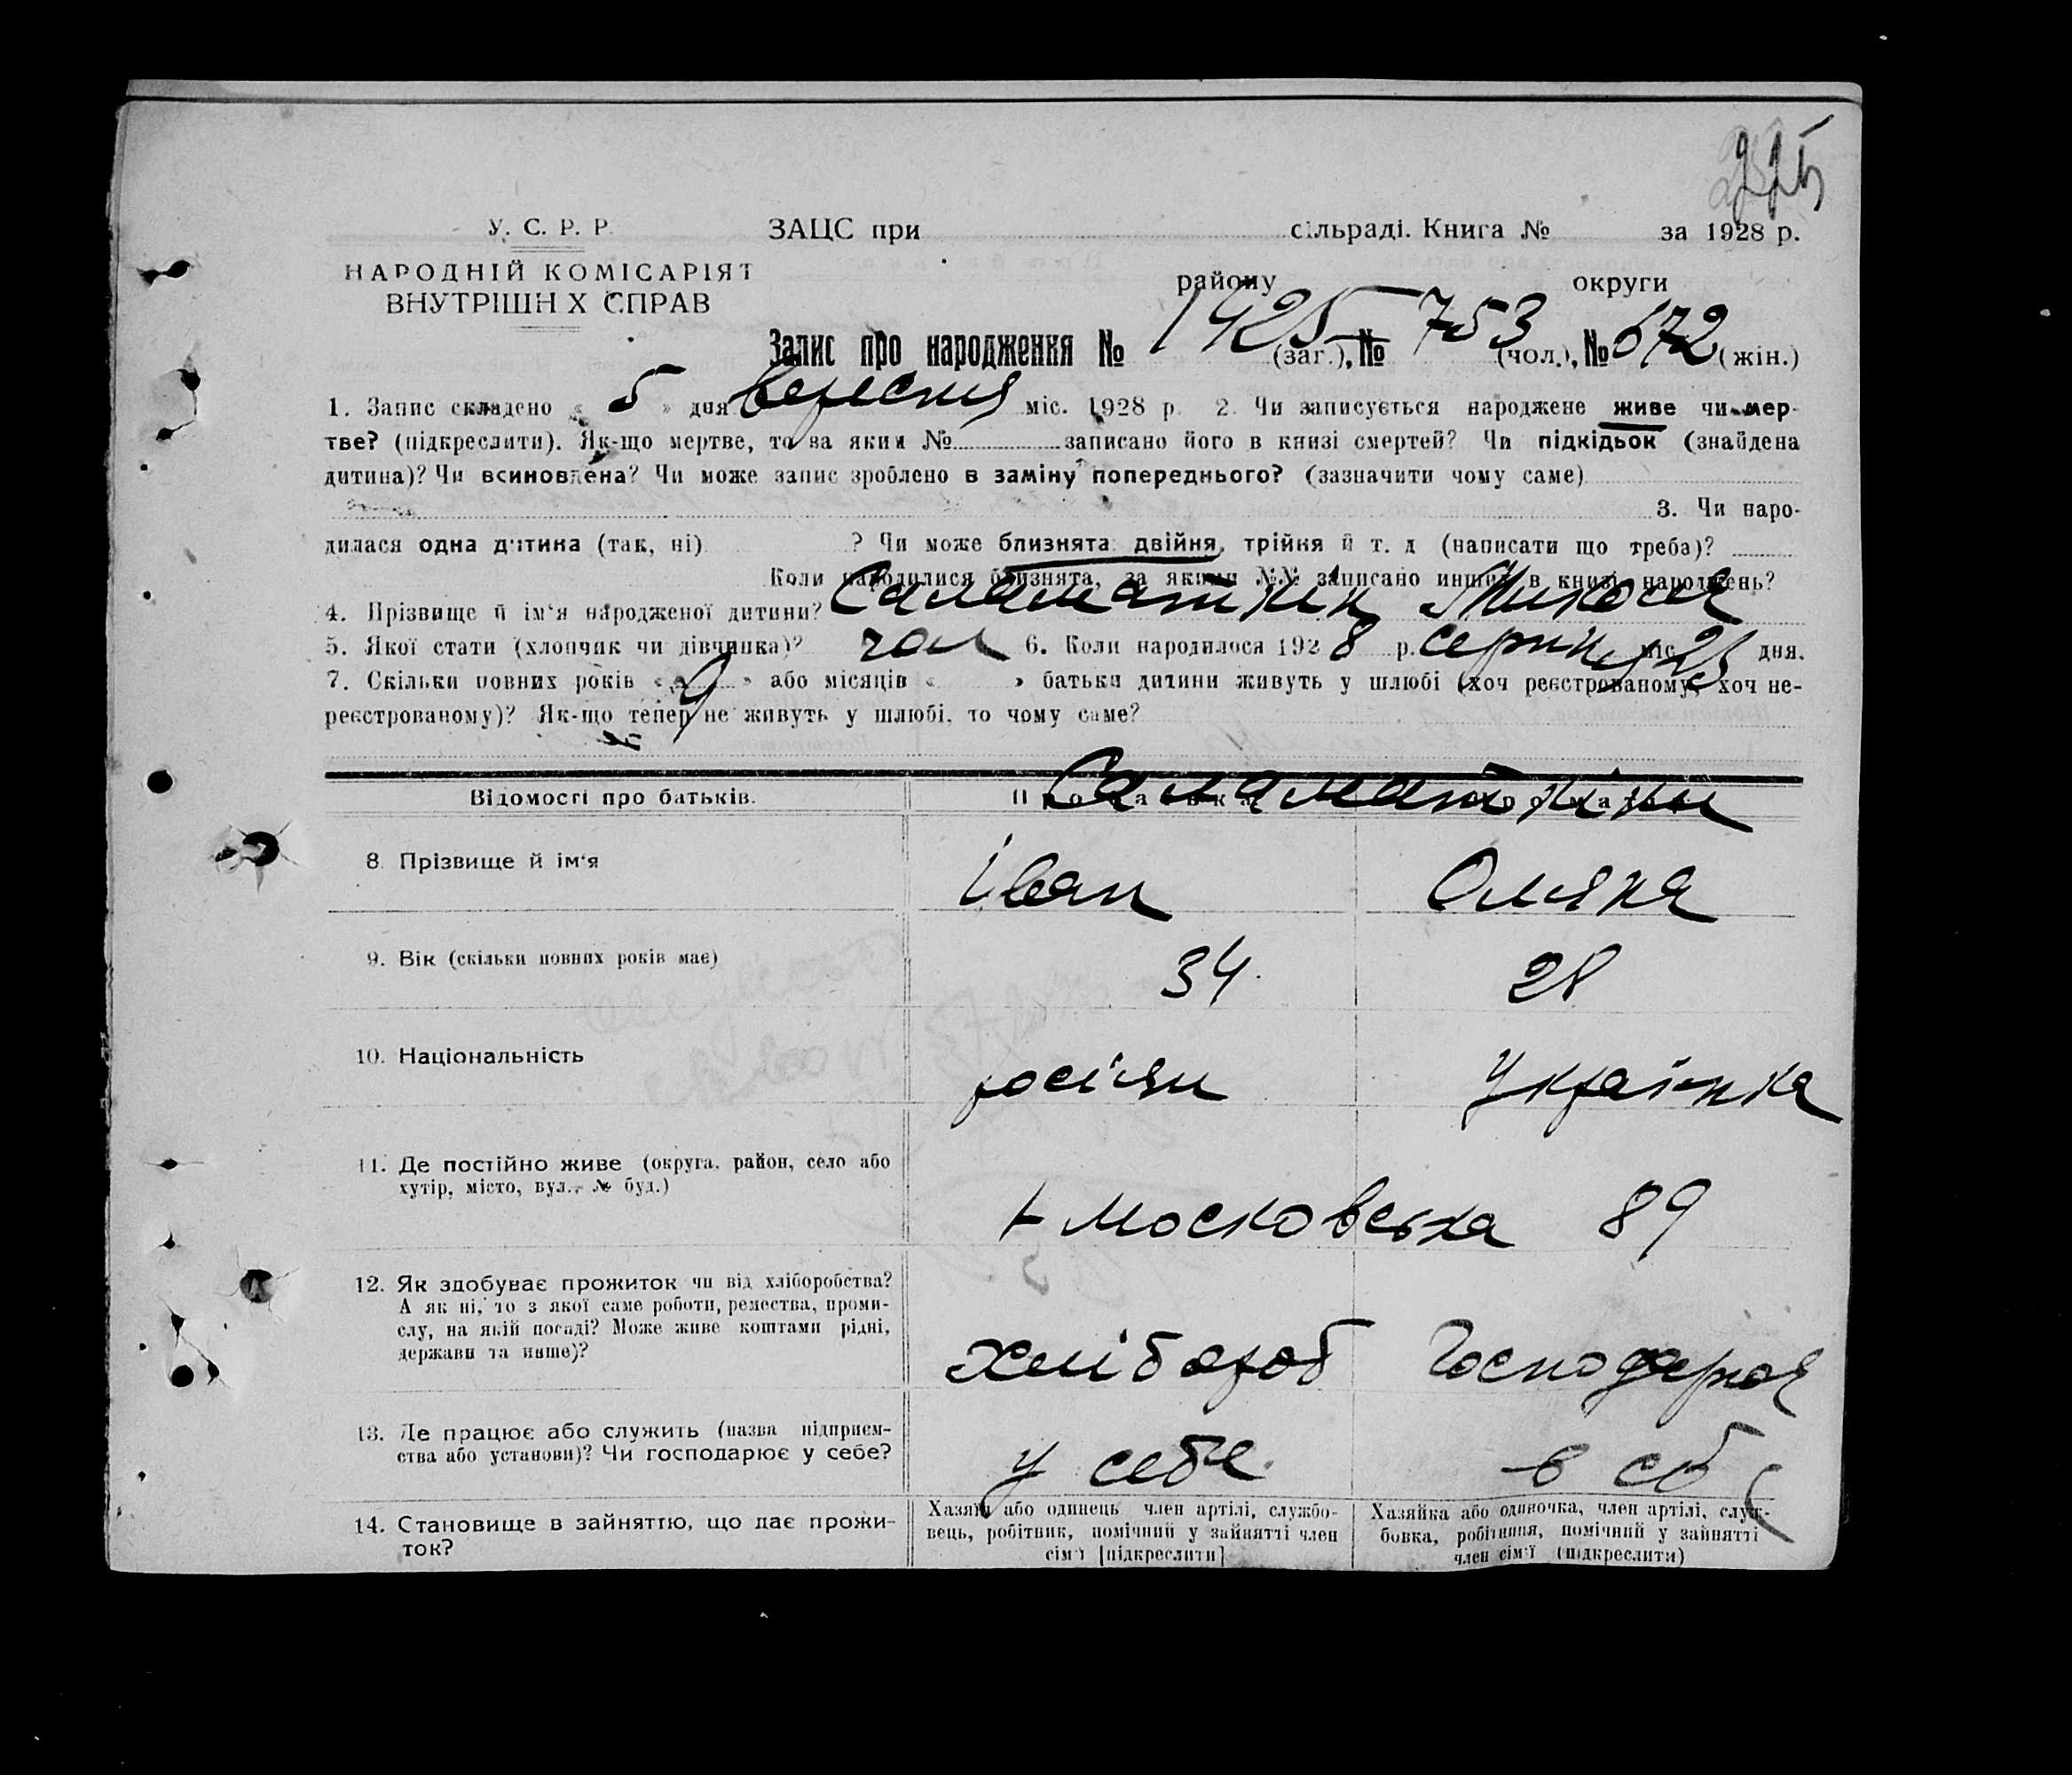 225
У. С. Р. Р.
ЗАЦС при сільраді. Книга № за 1928 р.
НАРОДНІЙ КОМІСАРІЯТ
ВНУТРІШН Х СПРАВ
району округи
Запис про народження № 1425 (заг.), № 753 (чол.), № 672 (жін.)
1. Запис складено « 5 » дня вересня міс. 1928 р. 2. Чи записується народжене живе чи мер-
тве? (підкреслити). Як-що мертве, то за яким № записано його в книзі смертей? Чи підкідьок (знайдена
дитина)? Чи всиновлена? Чи може запис зроблено в заміну попереднього? (зазначити чому саме)
3. Чи наро-
дилася одна дитина (так, ні) ? Чи може близнята: двійня, трійня й т. д (написати що треба)?
Коли народилися близнята, за якими №№ записано инших в книзі народжень?
4. Прізвище й ім'я народженої дитини? Саламаткін Микола
5. Якої стати (хлопчик чи дівчинка)? чол 6. Коли народилося 1928 р. серпня міс 25 дня.
7. Скільки повних років « 9 » або місяців « » батьки дитини живуть у шлюбі (хоч реєстрованому, хоч не-
реєстрованому)? Як-що тепер не живуть у шлюбі, то чому саме?
Саламаткіни
Відомості про батьків.
8. Прізвище й ім'я Іван
9. Вік (скільки повних років має) 34 28
10. Національність росіян Українка
11. Де постійно живе (округа, район, село або
хутір, місто, вул., № буд.)
Московська 89
12. Як здобуває прожиток чи від хліборобства?
А як ні, то з якої саме роботи, ремества, проми-
слу, на якій посаді? Може живе коштами рідні,
держави та инше)?
хлібороб Господарює
13. Де працює або служить (назва підприєм-
ства або установи)? Чи господарює у себе?
у себе в себ
14. Становище в зайняттю, що дає прожи-
ток?
Хазяїн або одинець член артілі, службо-
вець, робітник, помічний у зайнятті член
сім'ї [підкреслити]
Хазяйка або одиночка, член артілі, служ-
бовка, робітниця, помічний у зайнятті
член сім'ї (підкреслити)